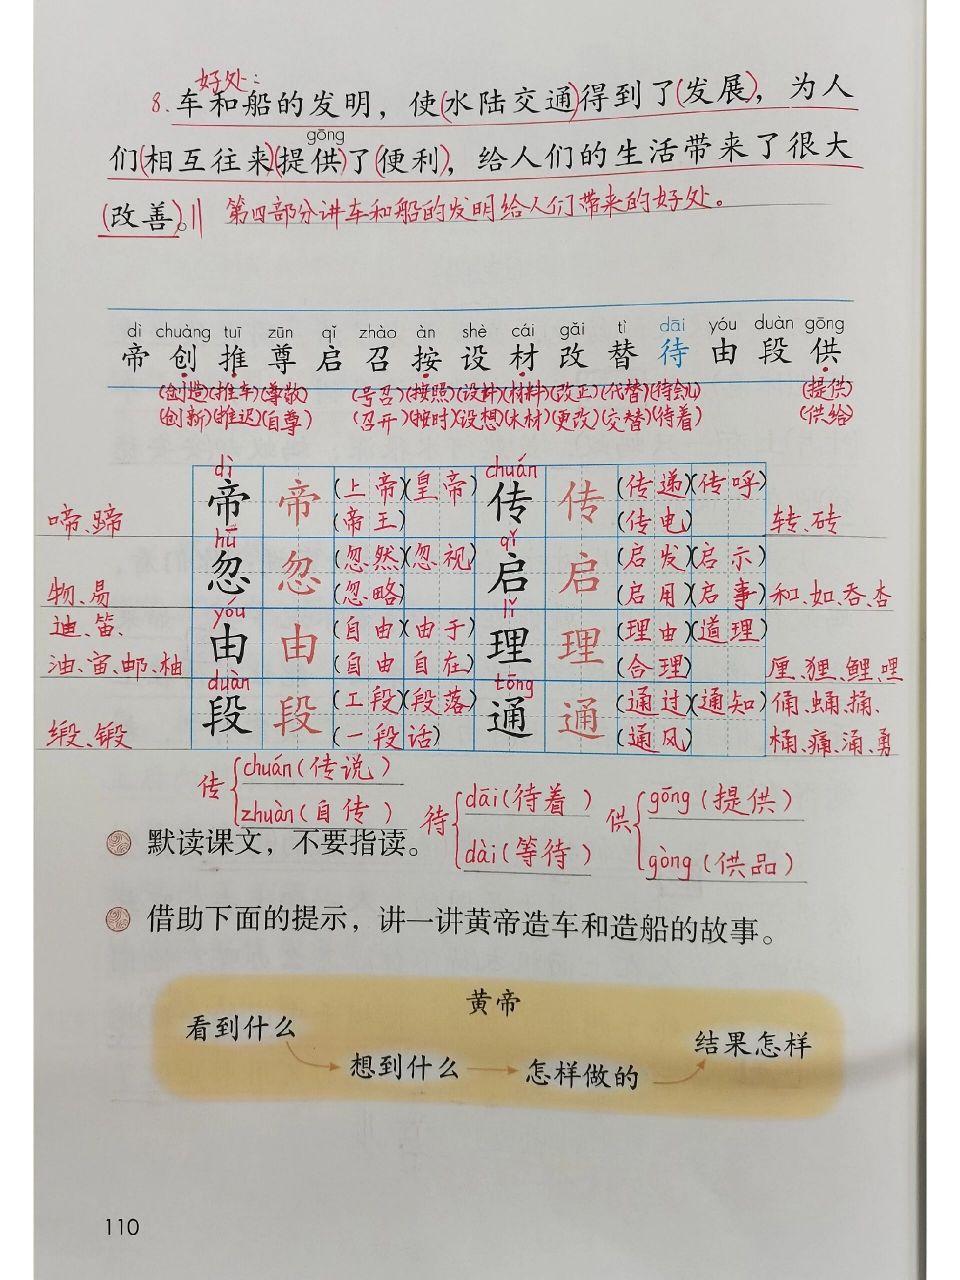 好处：
8.车和船的发明，使(水陆交通)得到了(发展)，为人
gōng
们(相互往来)(提供)了(便利)，给人们的生活带来了很大
(改善)。‖ 第四部分讲车和船的发明给人们带来的好处。
dì chuàng tuī zūn qǐ zhào àn shè cái gǎi tì dāi yóu duàn gōng
帝 创 推 尊 启 召 按 设 材 改 替 待 由 段 供
(创造)(推车)(尊敬) (号召)(按照)(设计)(材料)(改正)(代替)(待会儿) (提供)
(创新)(推迟)(自尊) (召开)(按时)(设想)(木材)(更改)(交替)(待着) (供给)
dì chuán
帝 帝 (上帝)(皇帝) 传 传 (传递)(传呼)
啼、蹄 (帝王) (传电) 转、砖
hū qǐ
忽 忽 (忽然)(忽视) 启 启 (启发)(启示)
物、易 (忽略) (启用)(启事) 和、如、吞、杏
yóu lǐ
迪、笛、 由 由 (自由)(由于) 理 理 (理由)(道理)
油、宙、邮、柚 (自由自在) (合理) 厘、狸、鲤、哩
duàn tōng
段 段 (工段)(段落) 通 通 (通过)(通知) 俑、蛹、捅、
缎、锻 (一段话) (通风) 桶、痛、涌、勇
传 chuán(传说)
zhuàn(自传)
待 dāi(待着)
dài(等待)
供 gōng(提供)
gòng(供品)
默读课文，不要指读。
借助下面的提示，讲一讲黄帝造车和造船的故事。
黄帝
看到什么
想到什么
怎样做的
结果怎样
110